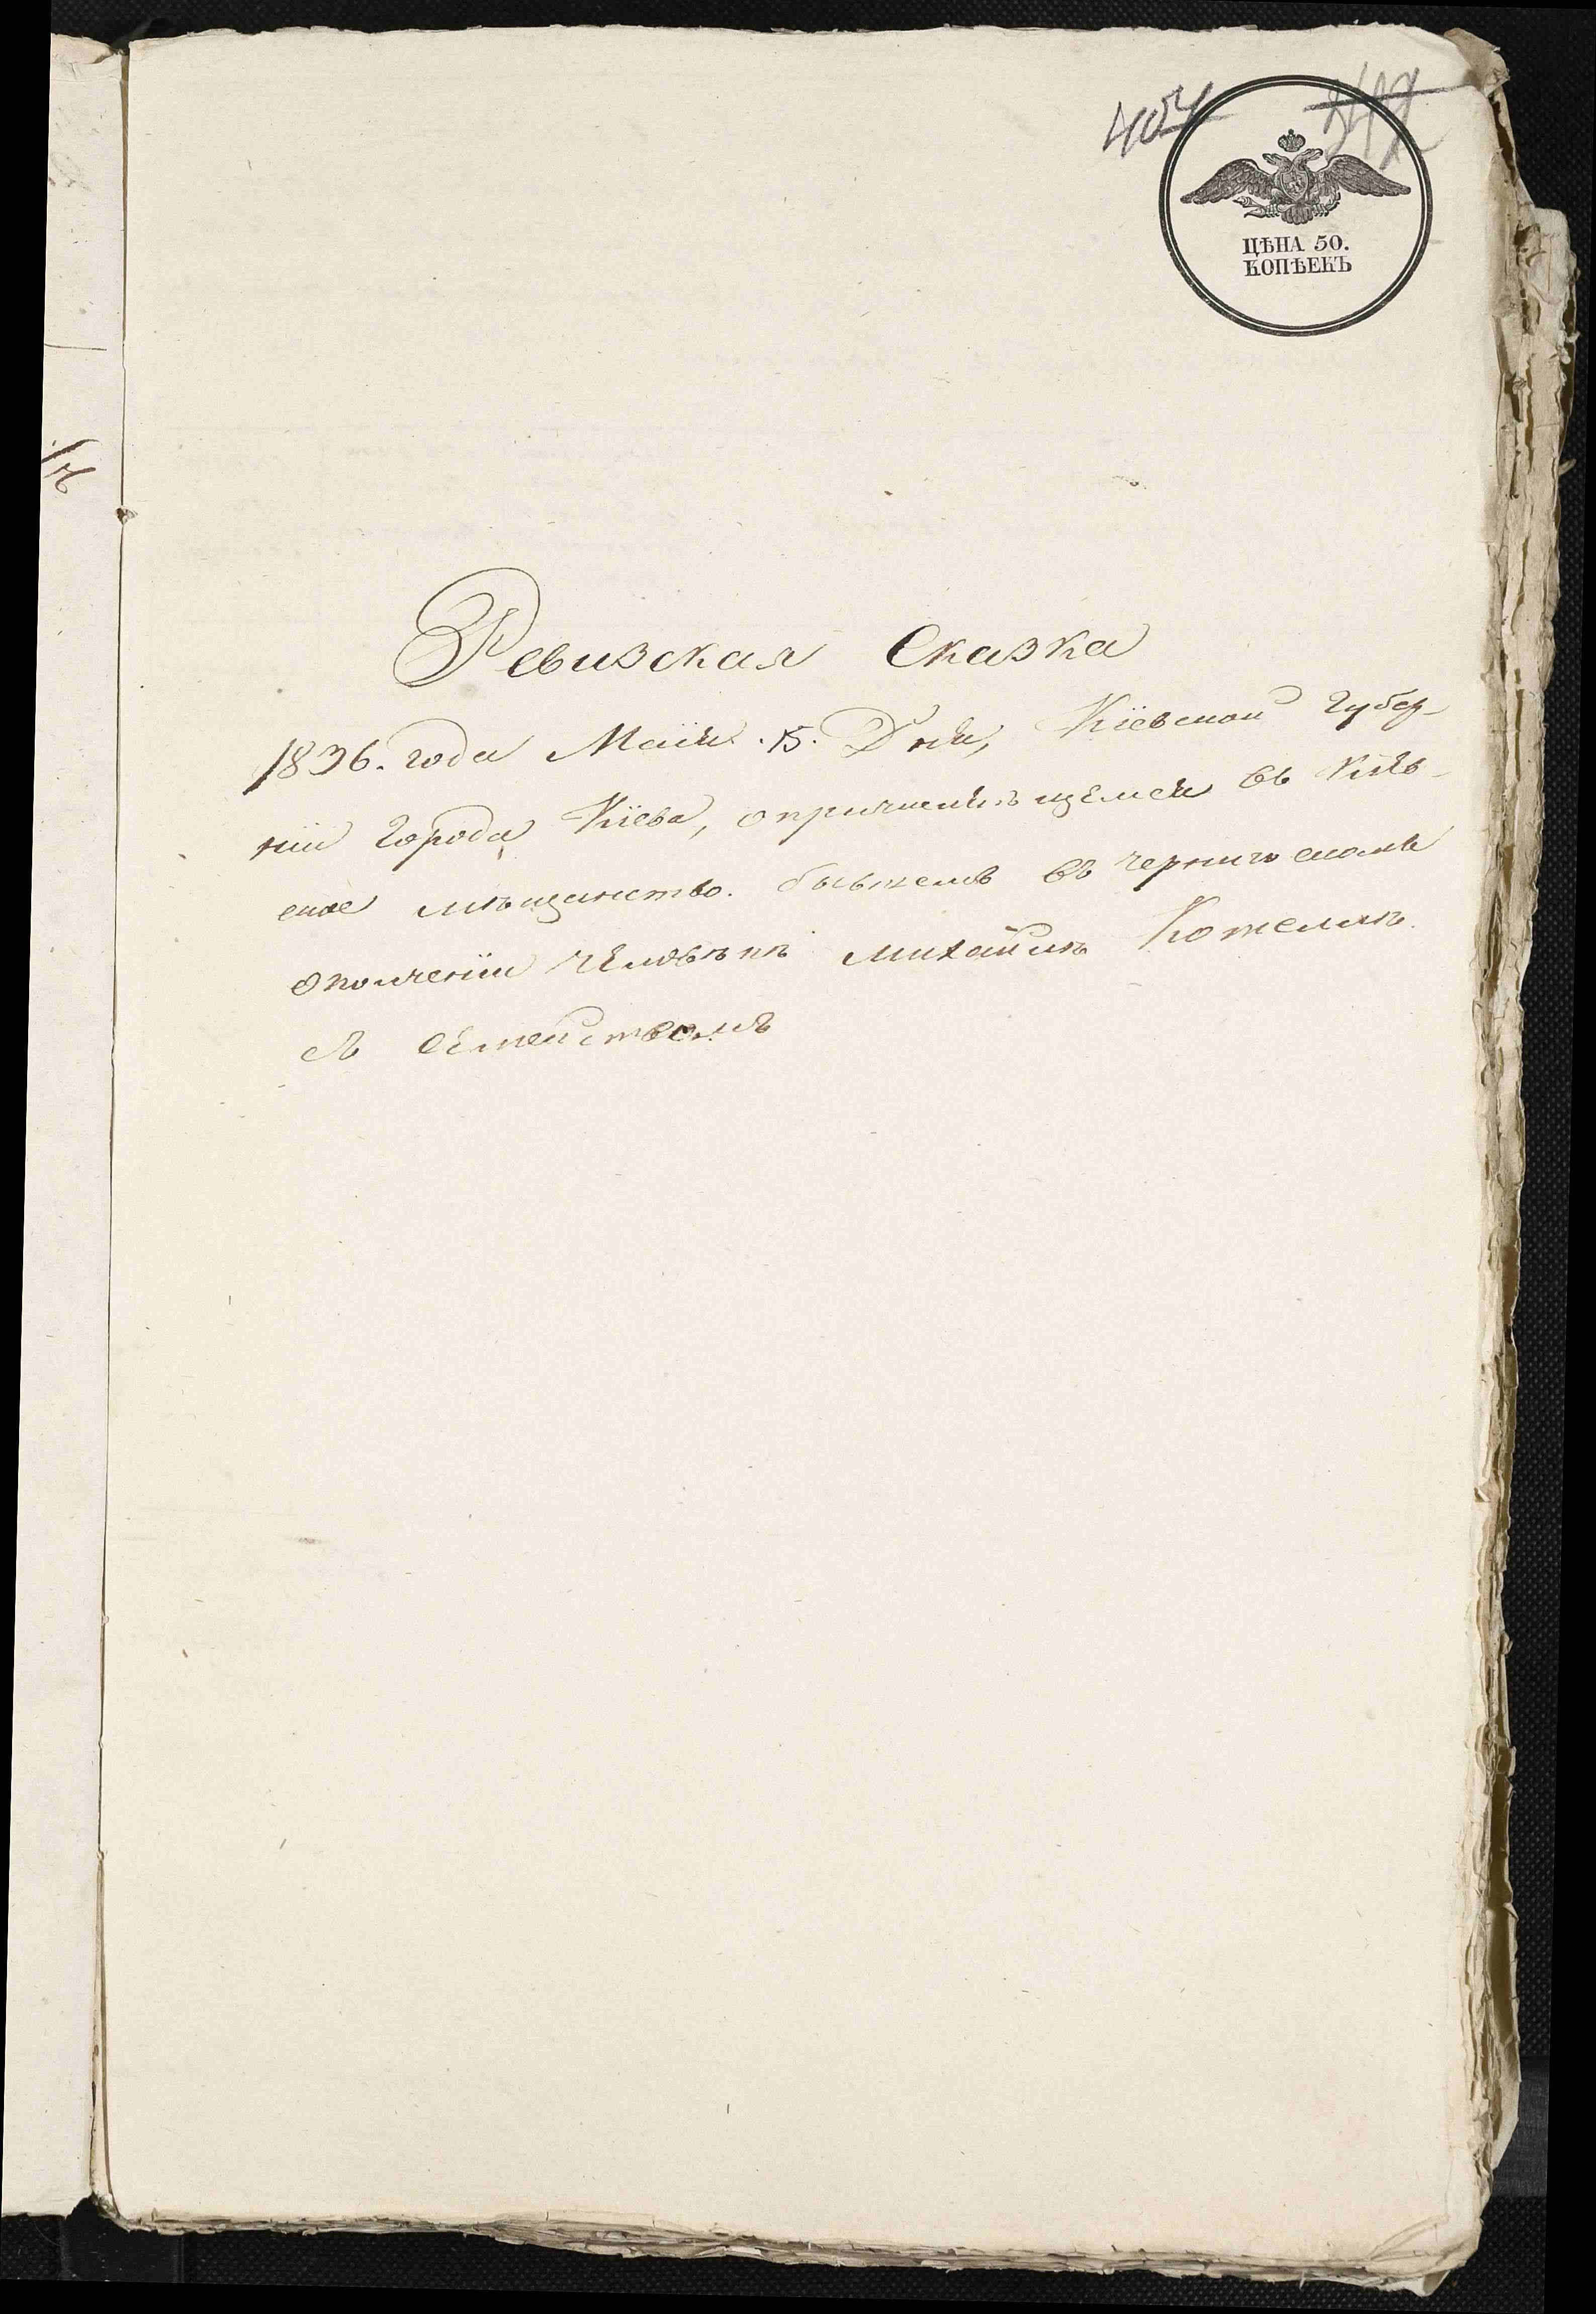 404
ЦѢНА 50.
КОПѢЕКЪ
Ревизская Сказка
1836. года Маія. 15. Дня, Кіевской Губер-
ніи Города Кіева, опричисляющемся въ Кіев-
ское мѣщанство. бывшемъ въ Черниго скомъ
ополченіи челоъвѣкѣ михайлѣ
съ Семействомъ